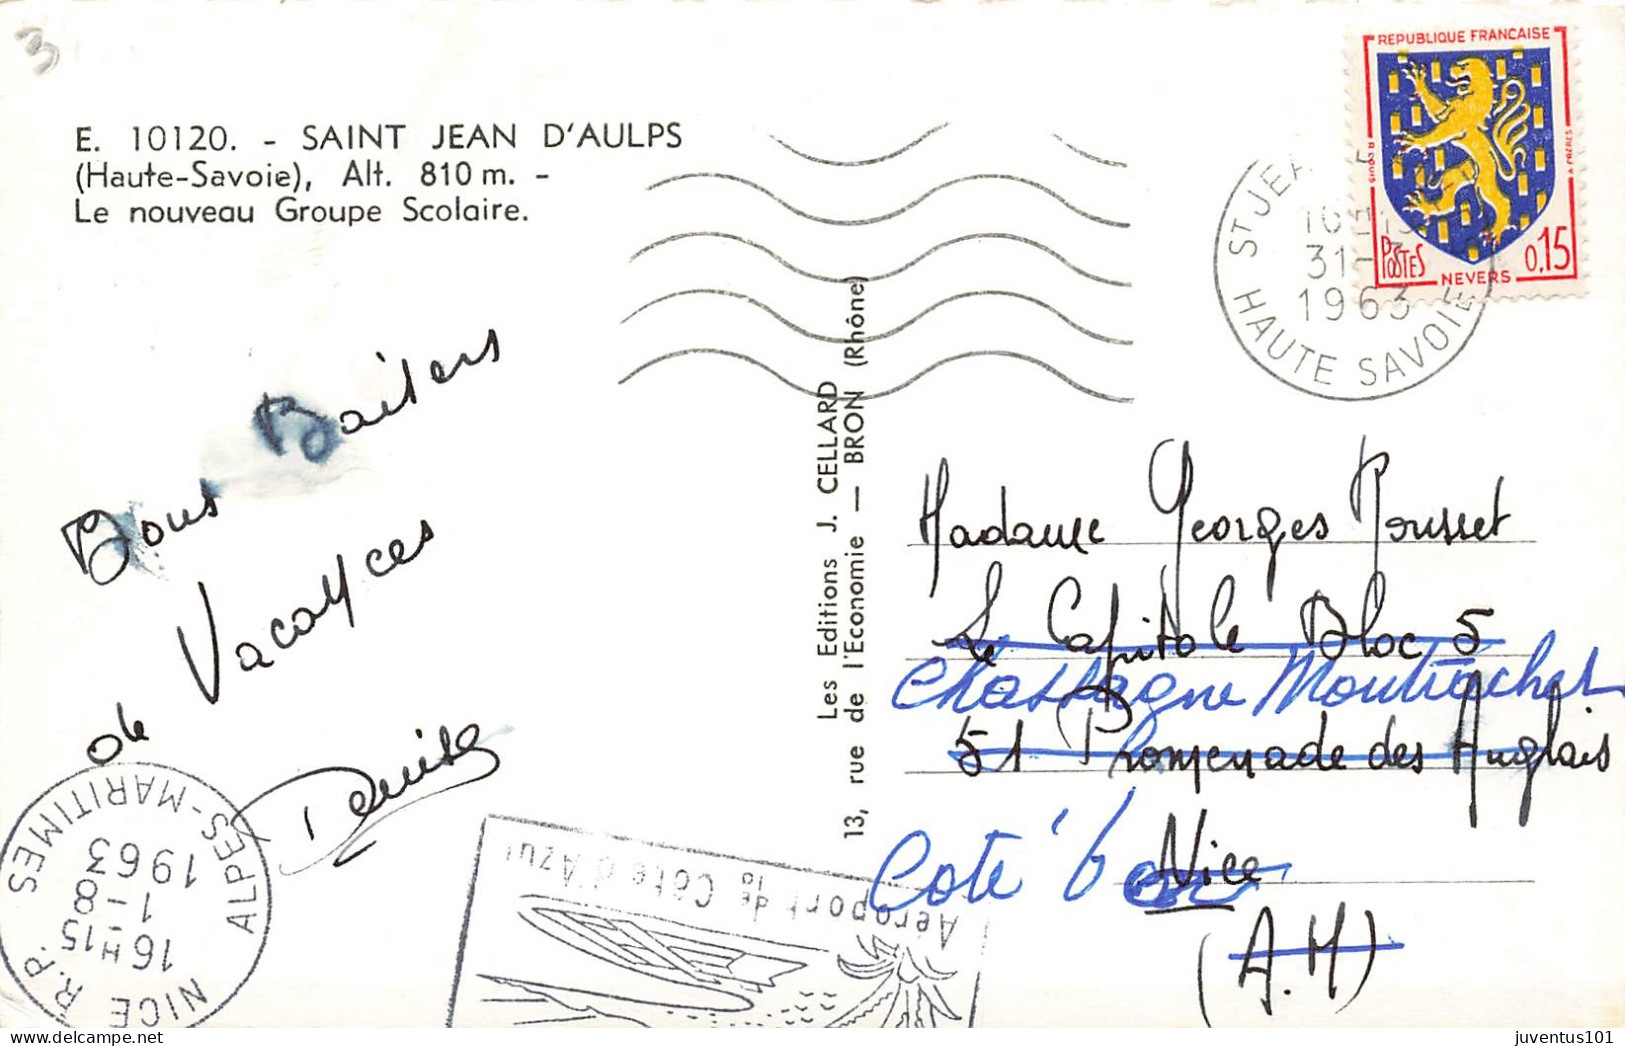 3
E. 10120. - SAINT JEAN D'AULPS
(Haute-Savoie), Alt. 810 m. -
Le nouveau Groupe Scolaire.
REPUBLIQUE FRANCAISE
POSTES
0,15
NEVERS
ST JEAN
31-
1963
HAUTE SAVOIE
Bons Baisers
de
Vacances
Denise
Les Editions J. CELLARD
13, rue de l'Economie — BRON (Rhône)
Madame Georges Mousset
Le Capitole Bloc 5
Chassagne Montrachet
51 Promenade des Anglais
Nice
Cote d'or
(A.M)
NICE R.P. ALPES-MARITIMES
16H15
1-8
1963
Aéroport de la Côte d'Azur
juventus101